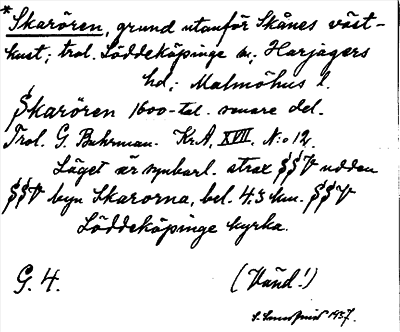 *Skarören, grund utanför Skånes väst-
kust; trol. Löddeköpinge sn, Harjagers
hd; Malmöhus l.
Skarören 1600-tal. senare del.
Trol. G. Buhrman. Kr.A. XVII. N:o 12.
Läget är synbarl. strax SSV udden
SSV byn Skarorna, bel. 4.3 km. SSV
Löddeköpinge kyrka.
G. 4. (Vänd!)
1937.